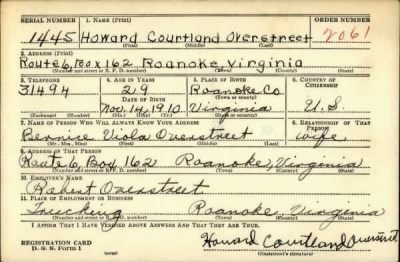 SERIAL NUMBER 1. NAME (Print) ORDER NUMBER
1445 Howard Courtland Overstreet 2061
(First) (Middle) (Last)
2. ADDRESS (Print)
Route 6, Box 162 Roanoke, Virginia
(Number and street or R. F. D. number) (Town) (County) (State)
3. TELEPHONE 4. AGE IN YEARS 5. PLACE OF BIRTH 6. COUNTRY OF CITIZENSHIP
31494 29 Roanoke Co
DATE OF BIRTH (Town or county)
Nov. 14, 1910 Virginia U.S.
(Exchange) (Number) (Mo.) (Day) (Yr.) (State or country)
7. NAME OF PERSON WHO WILL ALWAYS KNOW YOUR ADDRESS 8. RELATIONSHIP OF THAT PERSON
Bernice Viola Overstreet wife
(Mr., Mrs., Miss) (First) (Middle) (Last)
9. ADDRESS OF THAT PERSON
Route 6, Box, 162 Roanoke, Virginia
(Number and street or R. F. D. number) (Town) (County) (State)
10. EMPLOYER'S NAME
Robert Overstreet
11. PLACE OF EMPLOYMENT OR BUSINESS
Trucking Roanoke Virginia
(Number and street or R. F. D. number) (Town) (County) (State)
I AFFIRM THAT I HAVE VERIFIED ABOVE ANSWERS AND THAT THEY ARE TRUE.
REGISTRATION CARD
D. S. S. Form 1
Howard Courtland Overstreet
(Registrant's signature)